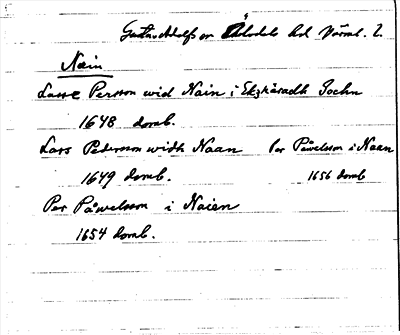 Gustav Adolfs sn Älvdals hd Värml. L.
Nain
Lasse Persson wid Nain i Ekshärads Sochn
1648 domb.
Lars Pedersson widh Naan Per Påvelsson i Naan
1649 domb. 1656 domb
Per Påwelsson i Naien
1654 domb.